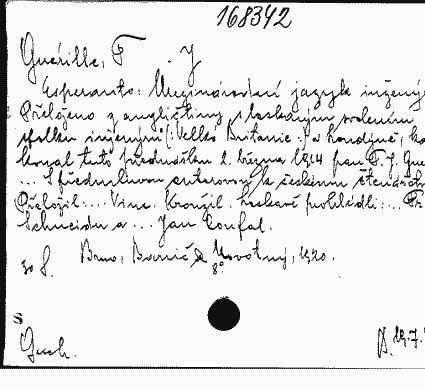 168342
Guérille, F. J
Esperanto: Mezinárodní jazyk inžený
Přeloženo z angličtiny s laskavým svolením
spolku inženýrů (: Velké Britanie :) v Londýně, ko
konal tuto přednášku 2. března 1914 pan F. J. Gue
... S předmluvou autorovou k českému čtenářstv
Přeložil .... Vinc. ... Laskavě prohlédli: ... Fr.
Schneider a ... Jan Confal.
Brno, Barvič & Novotný, 1920.
30 S. 8°
S
Guch. 19. 7.